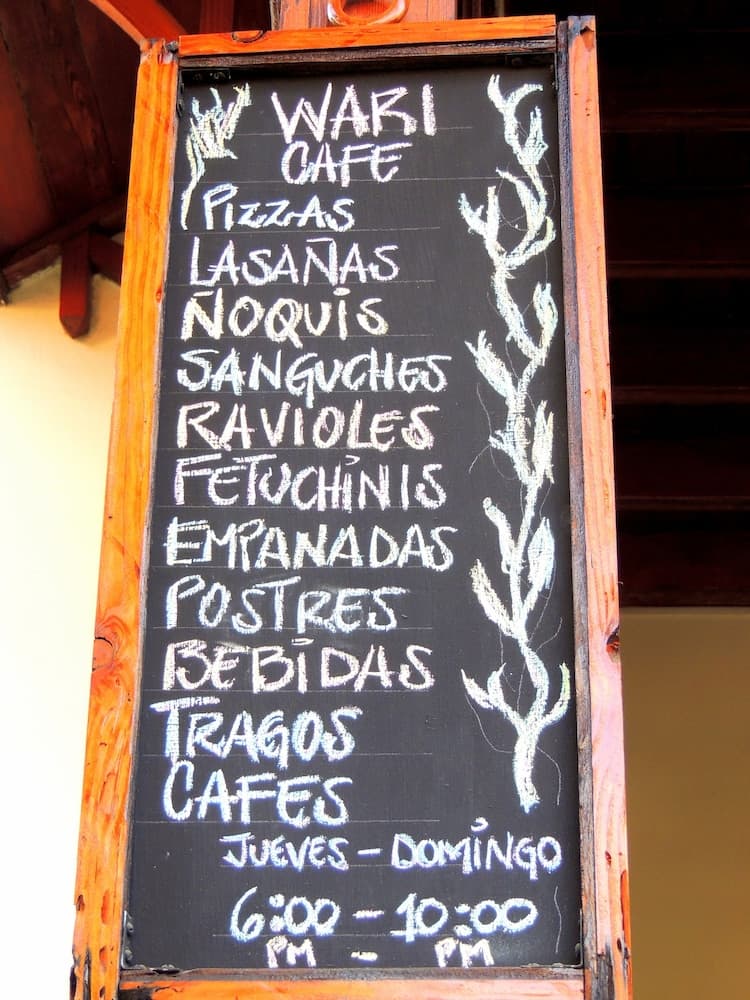 WARI
CAFE
PIZZAS
LASAÑAS
ÑOQUIS
SANGUCHES
RAVIOLES
FETUCHINIS
EMPANADAS
POSTRES
BEBIDAS
TRAGOS
CAFES
JUEVES - DOMINGO
6:00 - 10:00
PM - PM